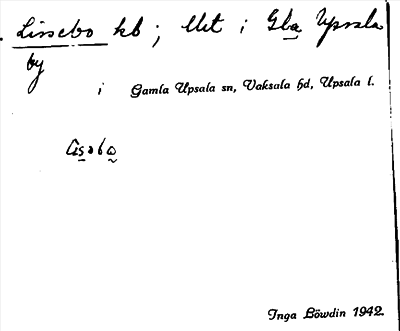 Lissebo kb; Ulet i Gla Upsala
by
i Gamla Upsala sn, Vaksala hd, Upsala l.
Inga Löwdin 1942.